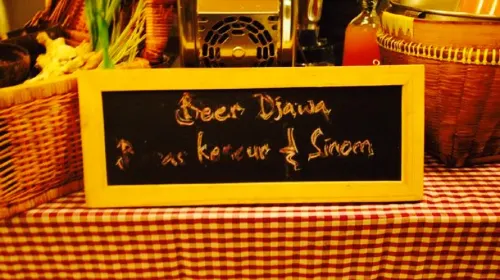 Beer Djawa
kencur & Sinom